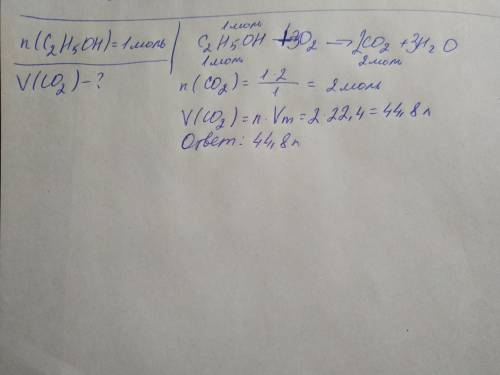 n(C₂H₅OH)=1моль
V(CO₂)-?
1моль
C₂H₅OH +3O₂ → 2CO₂ +3H₂O
1моль 2моль
n(CO₂)= 1·2/1 = 2моль
V(CO₂)=n·Vm=2·22,4=44,8л
Ответ: 44,8л